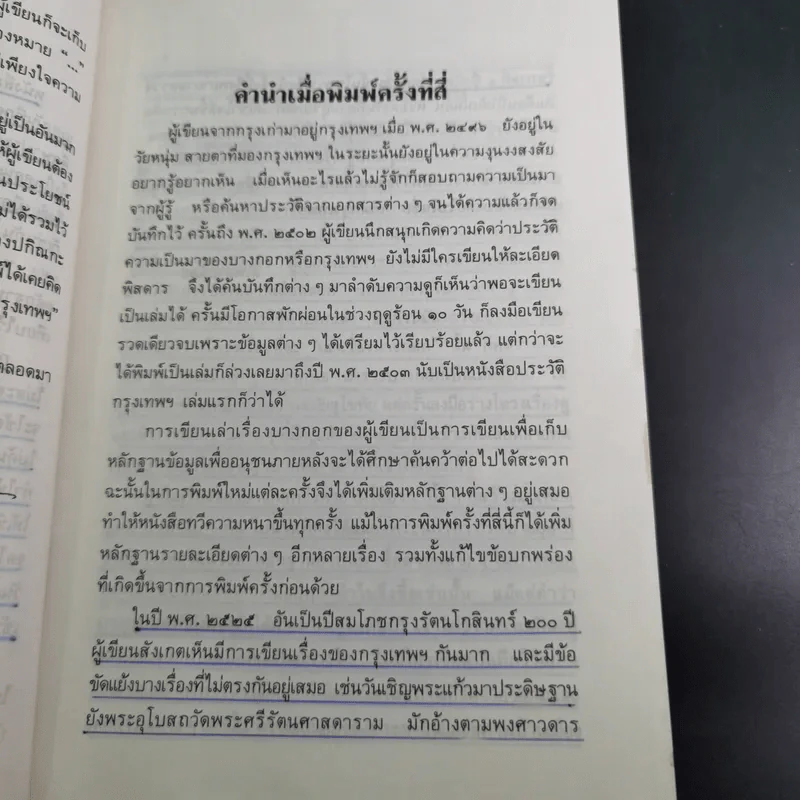 ผู้เขียนก็จะเก็บ
องหมาย "..."
เพียงใจความ
ยู่เป็นอันมาก
ห้ผู้เขียนต้อง
นประโยชน์
ม่ได้รวมไว้
งปกิณกะ
ได้เคยคิด
รุงเทพฯ"
ตลอดมา
คำนำเมื่อพิมพ์ครั้งที่สี่
ผู้เขียนจากกรุงเก่ามาอยู่กรุงเทพฯ เมื่อ พ.ศ. ๒๔๙๖ ยังอยู่ใน
วัยหนุ่ม สายตาที่มองกรุงเทพฯ ในระยะนั้นยังอยู่ในความงุนงงสงสัย
อยากรู้อยากเห็น เมื่อเห็นอะไรแล้วไม่รู้จักก็สอบถามความเป็นมา
จากผู้รู้ หรือค้นหาประวัติจากเอกสารต่าง ๆ จนได้ความแล้วก็จด
บันทึกไว้ ครั้นถึง พ.ศ. ๒๕๐๒ ผู้เขียนนึกสนุกเกิดความคิดว่าประวัติ
ความเป็นมาของบางกอกหรือกรุงเทพฯ ยังไม่มีใครเขียนให้ละเอียด
พิสดาร จึงได้ค้นบันทึกต่าง ๆ มาลำดับความดูก็เห็นว่าพอจะเขียน
เป็นเล่มได้ ครั้นมีโอกาสพักผ่อนในช่วงฤดูร้อน ๑๐ วัน ก็ลงมือเขียน
รวดเดียวจบเพราะข้อมูลต่าง ๆ ได้เตรียมไว้เรียบร้อยแล้ว แต่กว่าจะ
ได้พิมพ์เป็นเล่มก็ล่วงเลยมาถึงปี พ.ศ. ๒๕๐๓ นับเป็นหนังสือประวัติ
กรุงเทพฯ เล่มแรกก็ว่าได้
การเขียนเล่าเรื่องบางกอกของผู้เขียนเป็นการเขียนเพื่อเก็บ
หลักฐานข้อมูลเพื่ออนุชนภายหลังจะได้ศึกษาค้นคว้าต่อไปได้สะดวก
ฉะนั้นในการพิมพ์ใหม่แต่ละครั้งจึงได้เพิ่มเติมหลักฐานต่าง ๆ อยู่เสมอ
ทำให้หนังสือทวีความหนาขึ้นทุกครั้ง แม้ในการพิมพ์ครั้งที่สี่นี้ก็ได้เพิ่ม
หลักฐานรายละเอียดต่าง ๆ อีกหลายเรื่อง รวมทั้งแก้ไขข้อบกพร่อง
ที่เกิดขึ้นจากการพิมพ์ครั้งก่อนด้วย
ในปี พ.ศ. ๒๕๒๕ อันเป็นปีสมโภชกรุงรัตนโกสินทร์ ๒๐๐ ปี
ผู้เขียนสังเกตเห็นมีการเขียนเรื่องของกรุงเทพฯ กันมาก และมีข้อ
ขัดแย้งบางเรื่องที่ไม่ตรงกันอยู่เสมอ เช่นวันเชิญพระแก้วมาประดิษฐาน
ยังพระอุโบสถวัดพระศรีรัตนศาสดาราม มักอ้างตามพงศาวดาร